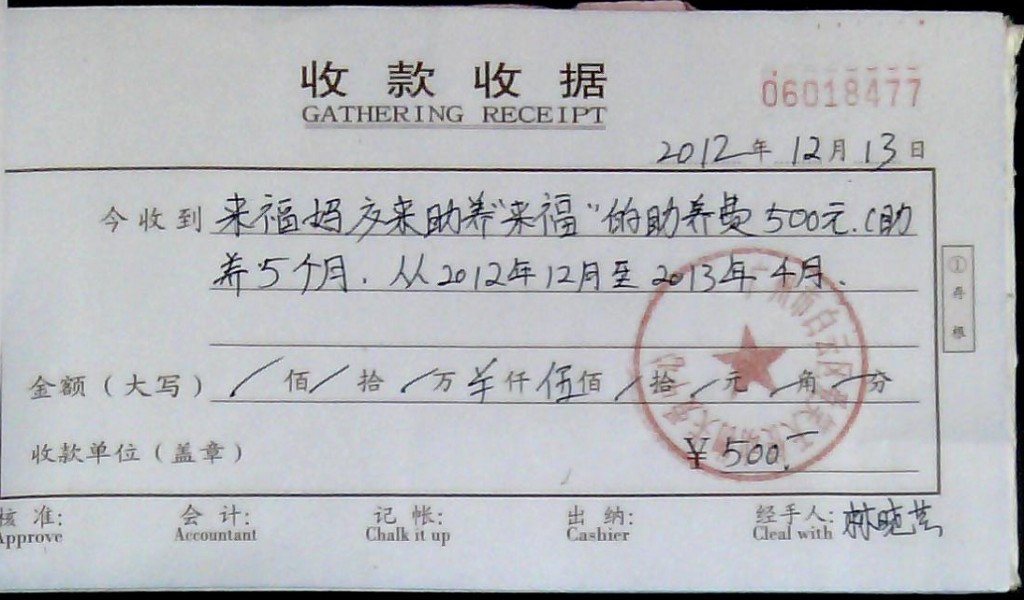 收款收据
GATHERING RECEIPT
06018477
2012年12月13日
今收到 来福妈 及来助养"来福"的助养费500元.(助
养5个月.从2012年12月至2013年4月.
金额(大写) / 佰 / 拾 / 万 ¥ 仟 伍佰 / 拾 / 元 / 角 / 分
收款单位(盖章) ¥ 500.
核准: 会计: 记帐: 出纳: 经手人: 林晓芸
Approve Accountant Chalk it up Cashier Cleal with
① 存根